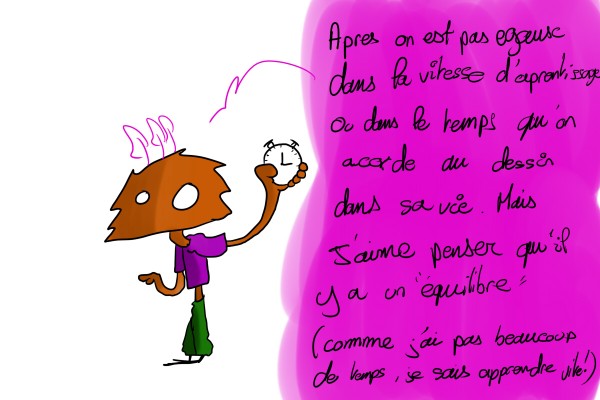 Apres on est pas egause
dans la vitesse d'aprentissage
Ou dans le temps qu'on
acorde au dessin
dans sa vie. Mais
J'aime penser qu'il
y a un "équilibre"
(comme j'ai pas beaucoup
de temps, je sais apprendre vite!)